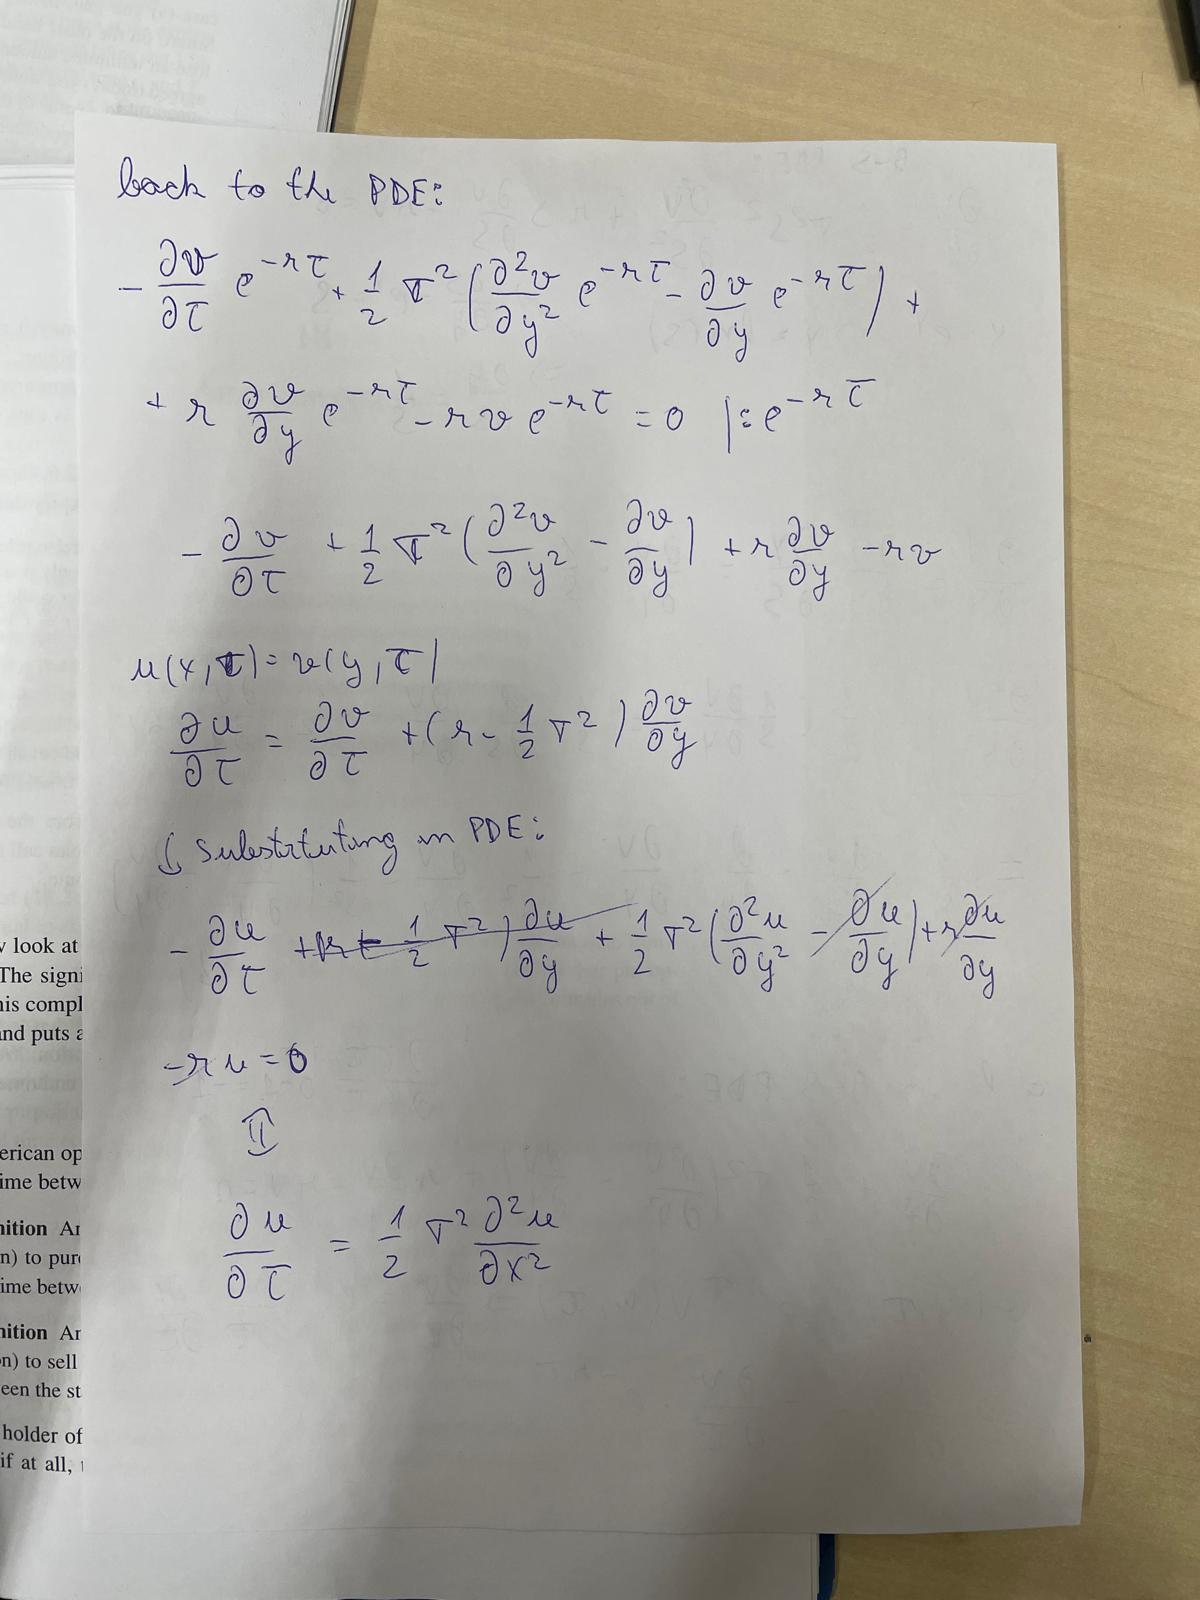 back to the PDE:
- ∂v/∂τ e^{-rτ} + 1/2 σ² (∂²v/∂y² e^{-rτ} - ∂v/∂y e^{-rτ}) +
+ r ∂v/∂y e^{-rτ} - r v e^{-rτ} = 0 |: e^{-rτ}
- ∂v/∂τ + 1/2 σ² (∂²v/∂y² - ∂v/∂y) + r ∂v/∂y - rv
u(x,τ) = v(y,τ)
∂u/∂τ = ∂v/∂τ + (r - 1/2 σ²) ∂v/∂y
↓ Substituting in PDE:
- ∂u/∂τ + (r - 1/2 σ²) ∂u/∂y + 1/2 σ² (∂²u/∂y² - ∂u/∂y) + r ∂u/∂y
- r u = 0
⇕
∂u/∂τ = 1/2 σ² ∂²u/∂x²
look at
The signi
his compl
and puts a
erican op
ime betw
nition Ar
n) to pur
ime betw
nition Ar
on) to sell
een the st
holder of
if at all,